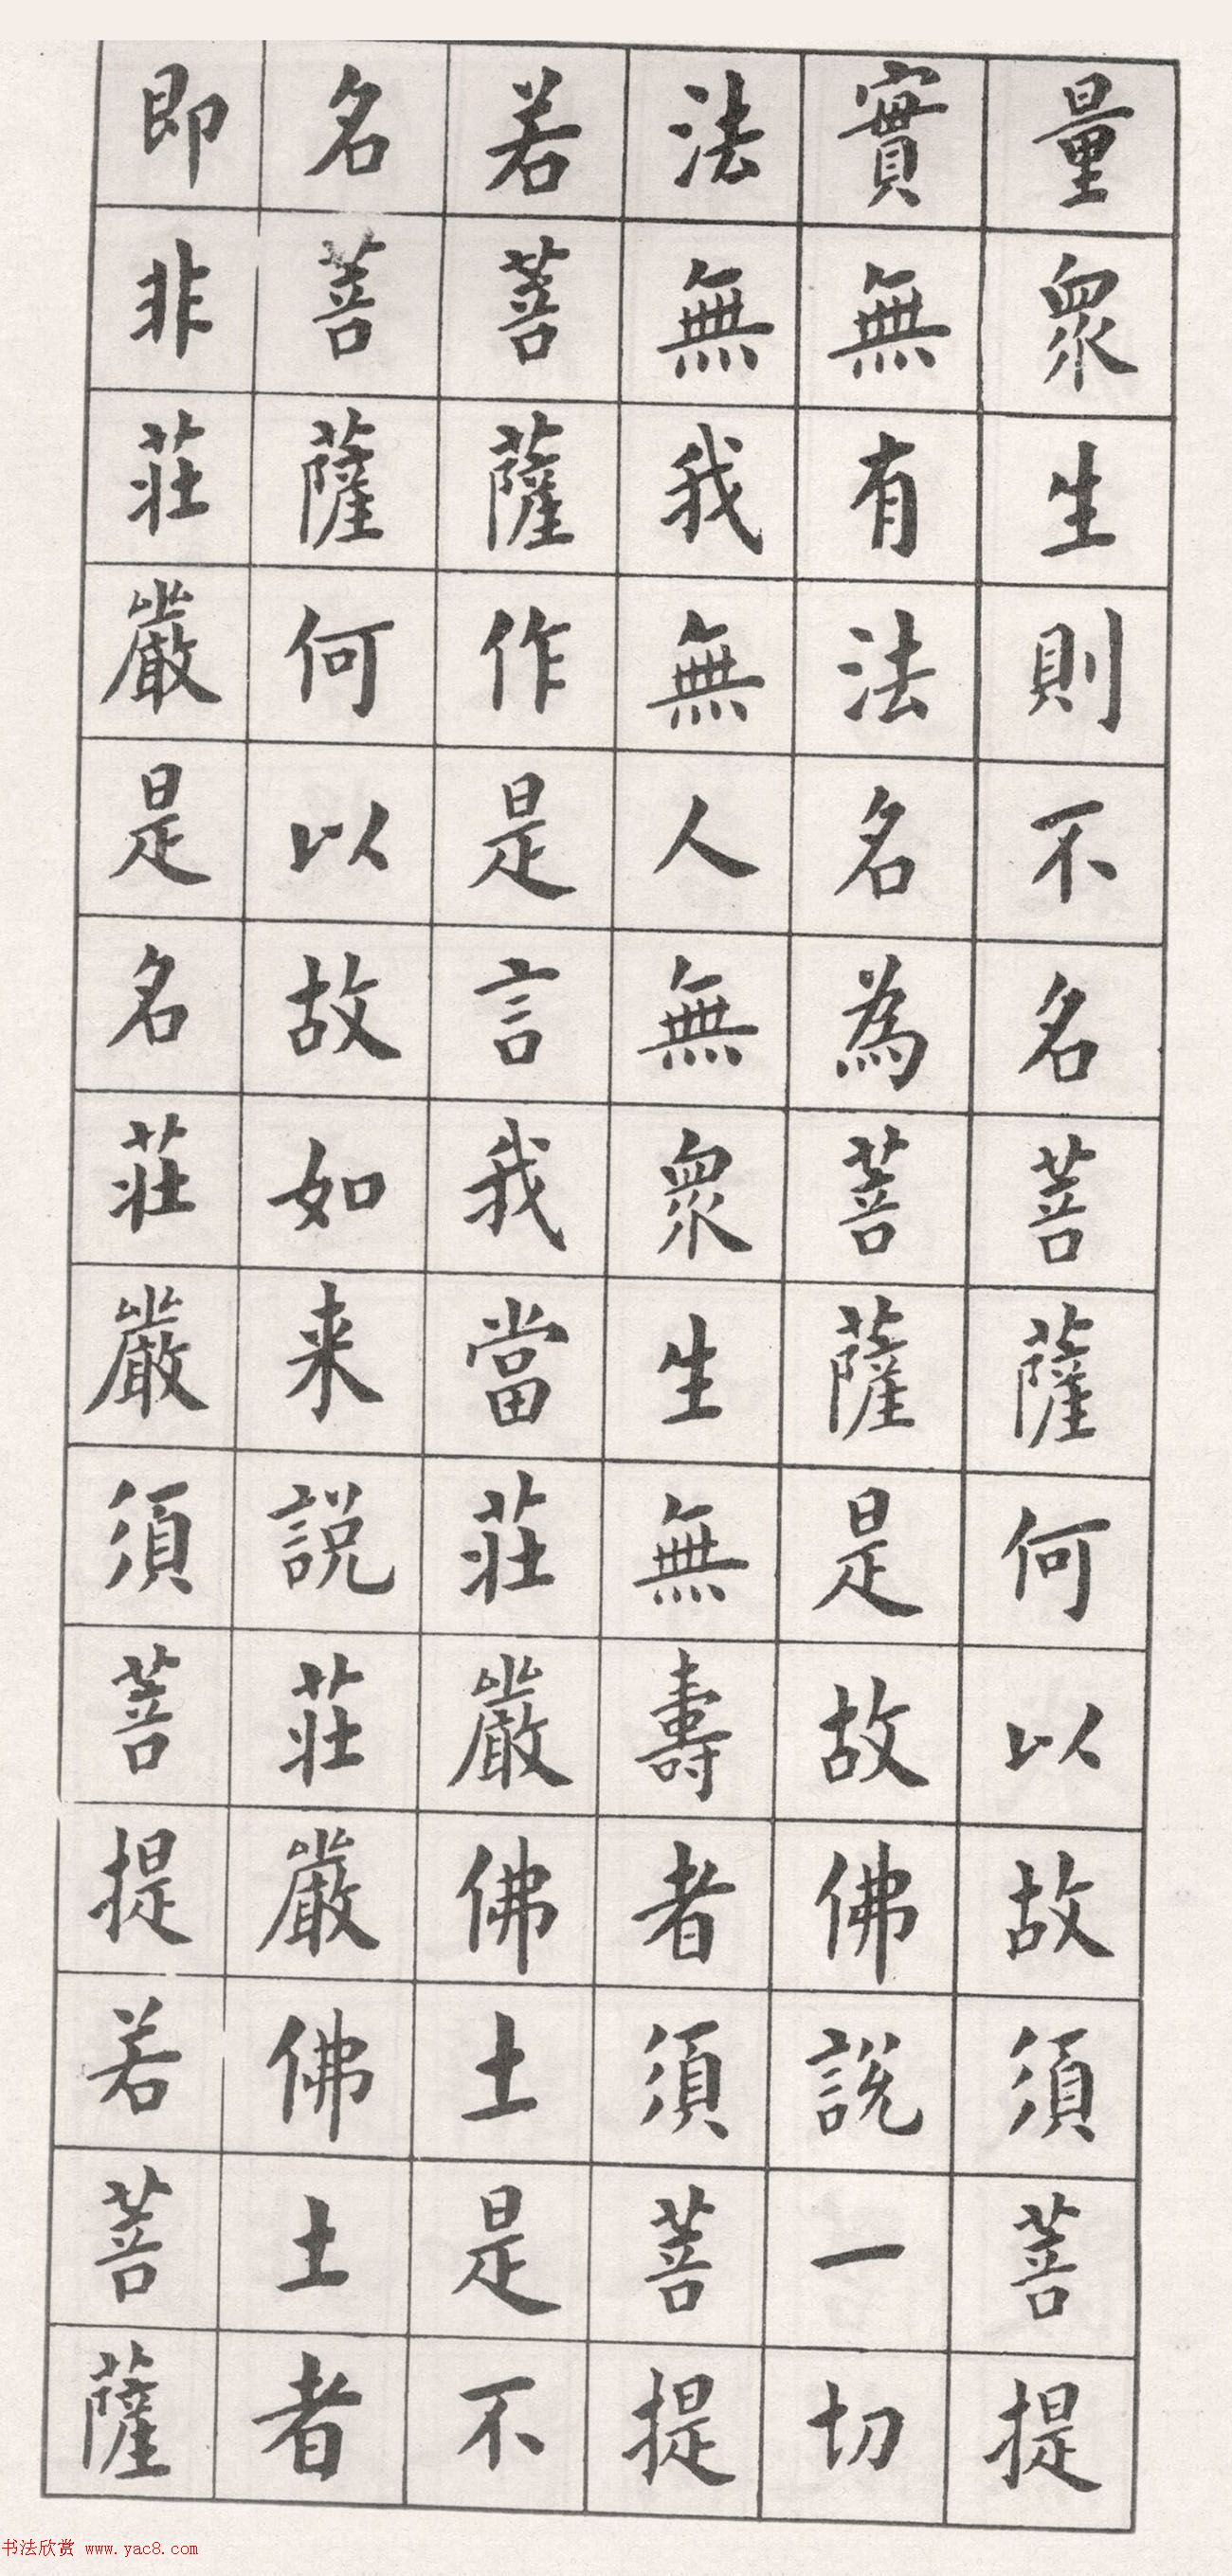 量眾生則不名菩薩何以故須菩提
實無有法名為菩薩是故佛說一切
法無我無人無眾生無壽者須菩提
若菩薩作是言我當莊嚴佛土是不
名菩薩何以故如来說莊嚴佛土者
即非莊嚴是名莊嚴須菩提若菩薩
书法欣赏 www.yac8.com